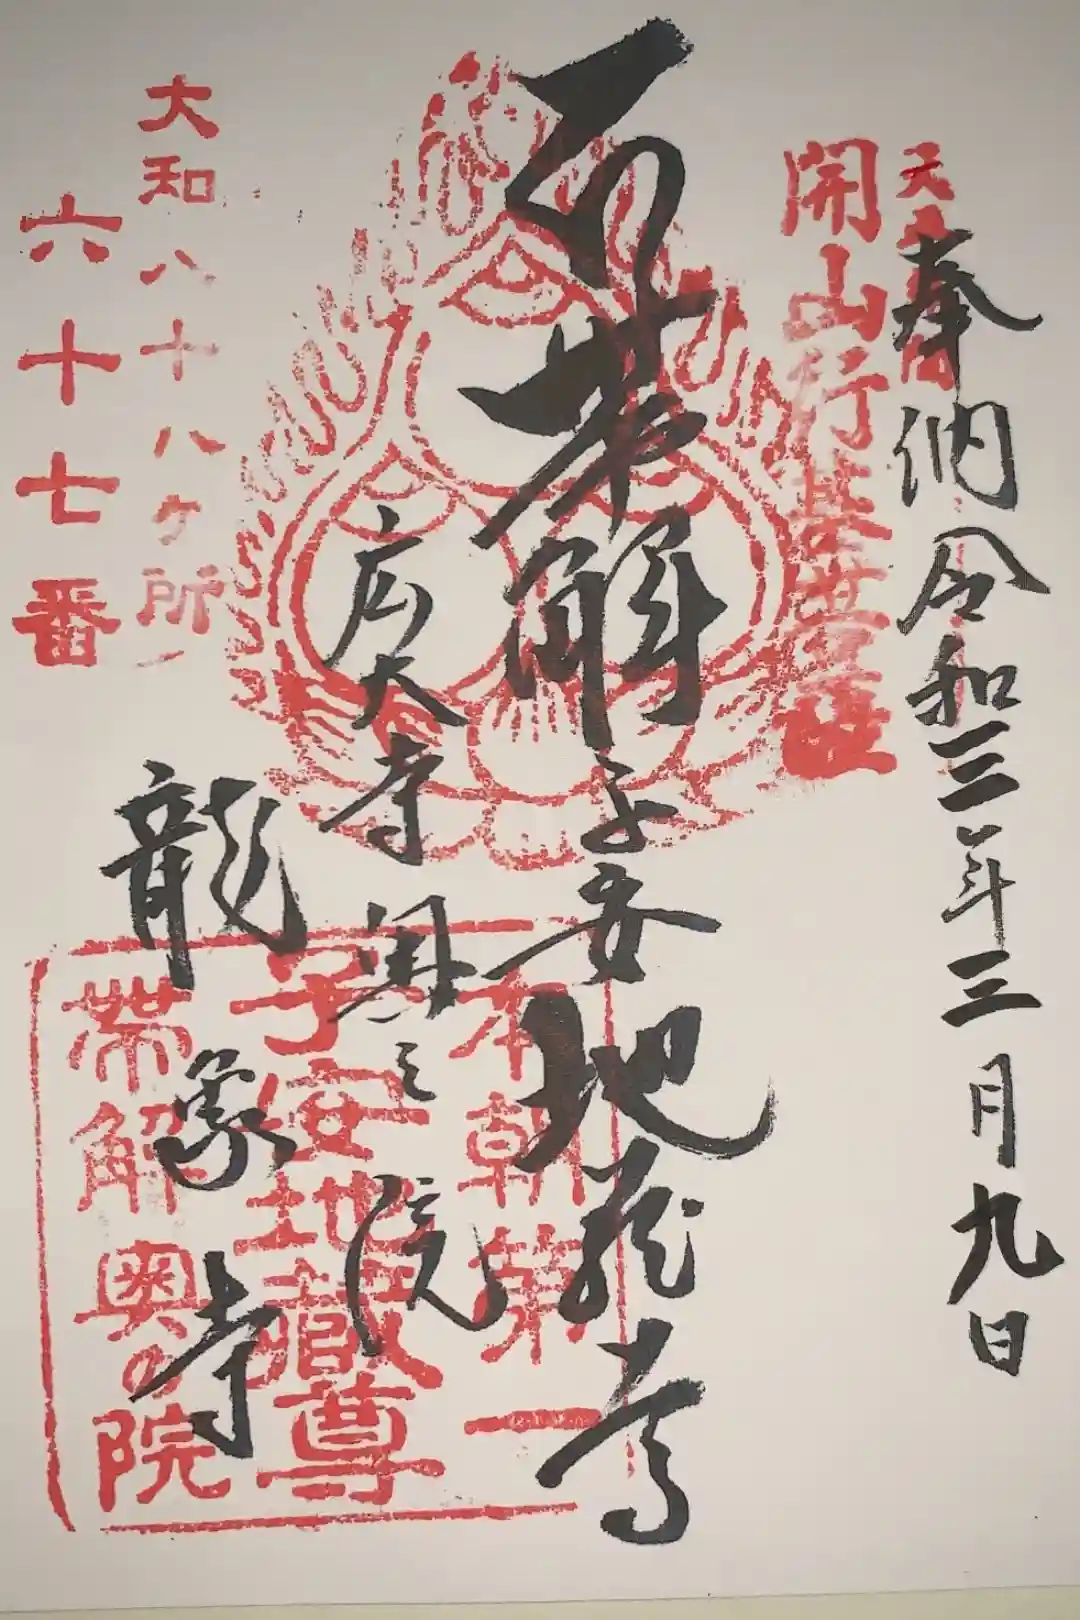 奉納 令和三年三月九日
開山行基菩薩
帯解子安地蔵尊
本朝第一
子安地蔵尊
帯解奥の院
大寺奥之院
龍象寺
大和八十八ヶ所
六十七番